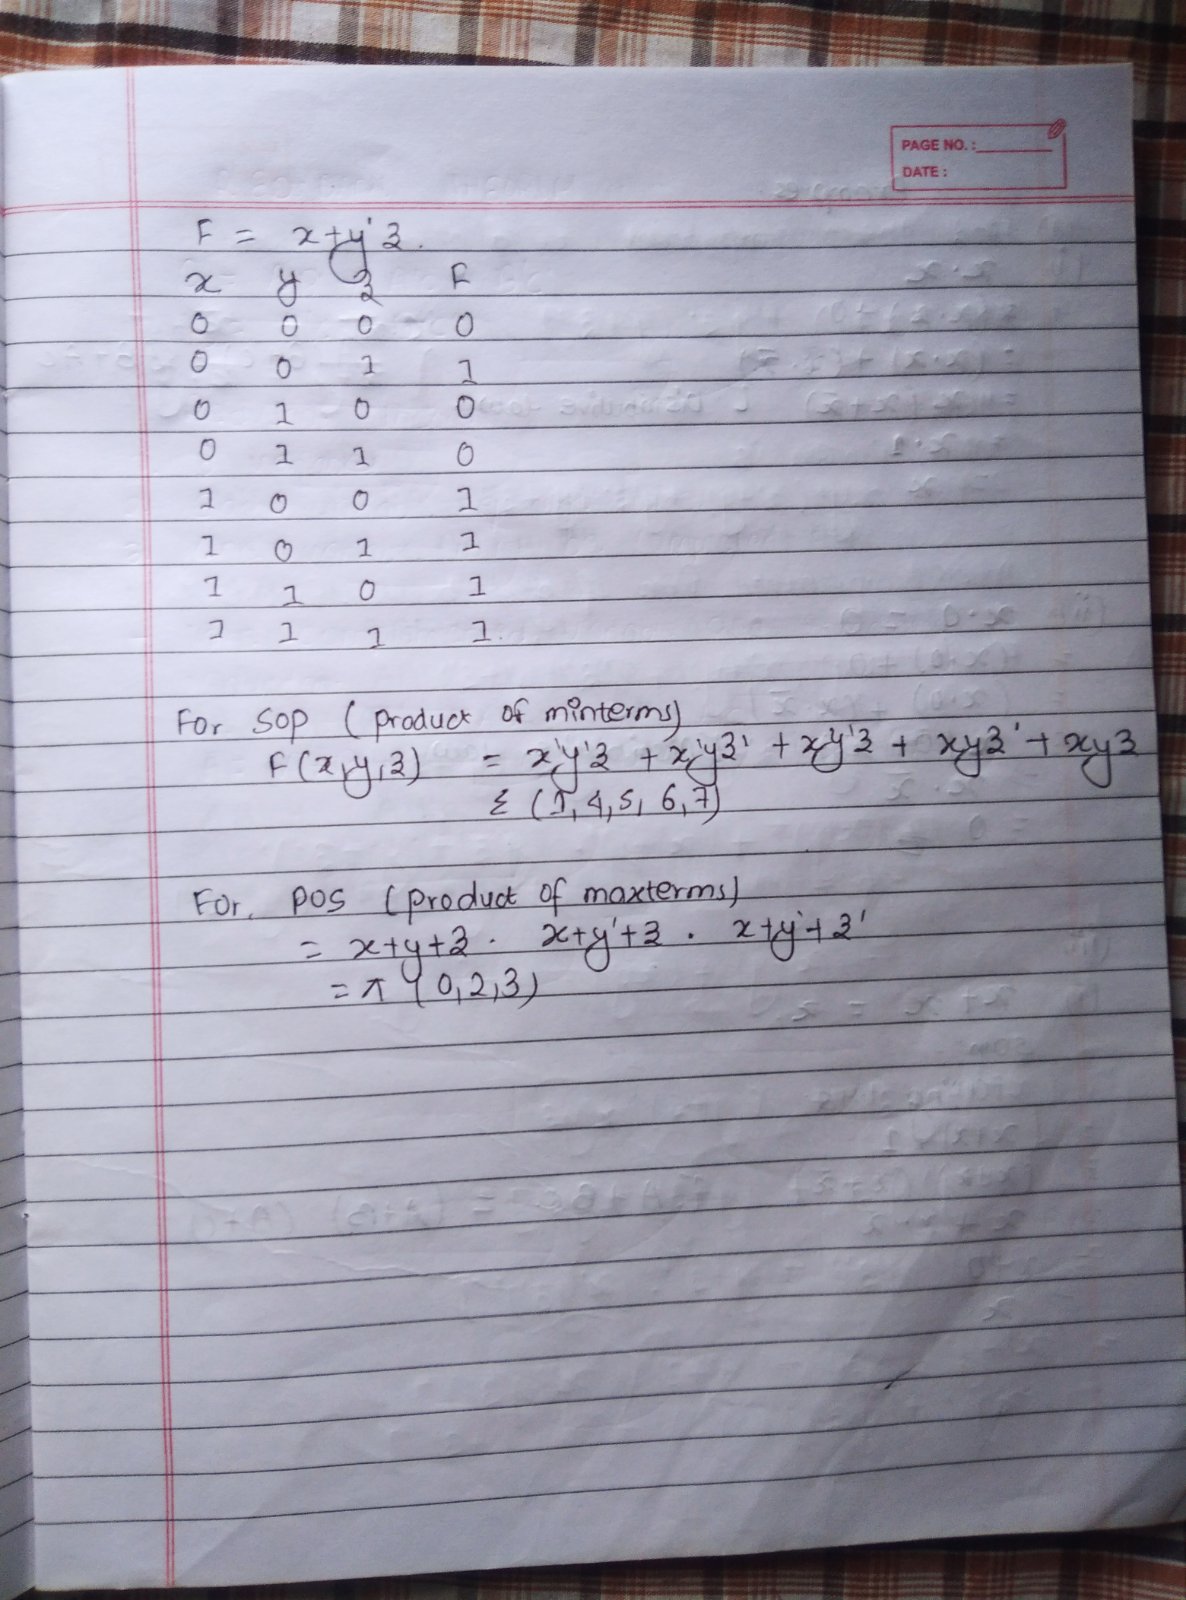 PAGE NO.:
DATE:
F = x+y'z.
x y z F
0 0 0 0
0 0 1 1
0 1 0 0
0 1 1 0
1 0 0 1
1 0 1 1
1 1 0 1
1 1 1 1.
For SOP (product of minterms)
F(x,y,z) = x'y'z + x'yz' + xy'z + xyz' + xyz
Σ (1,4,5,6,7)
For. POS (product of maxterms)
= x+y+z . x+y'+z . x+y'+z'
= π (0,2,3)